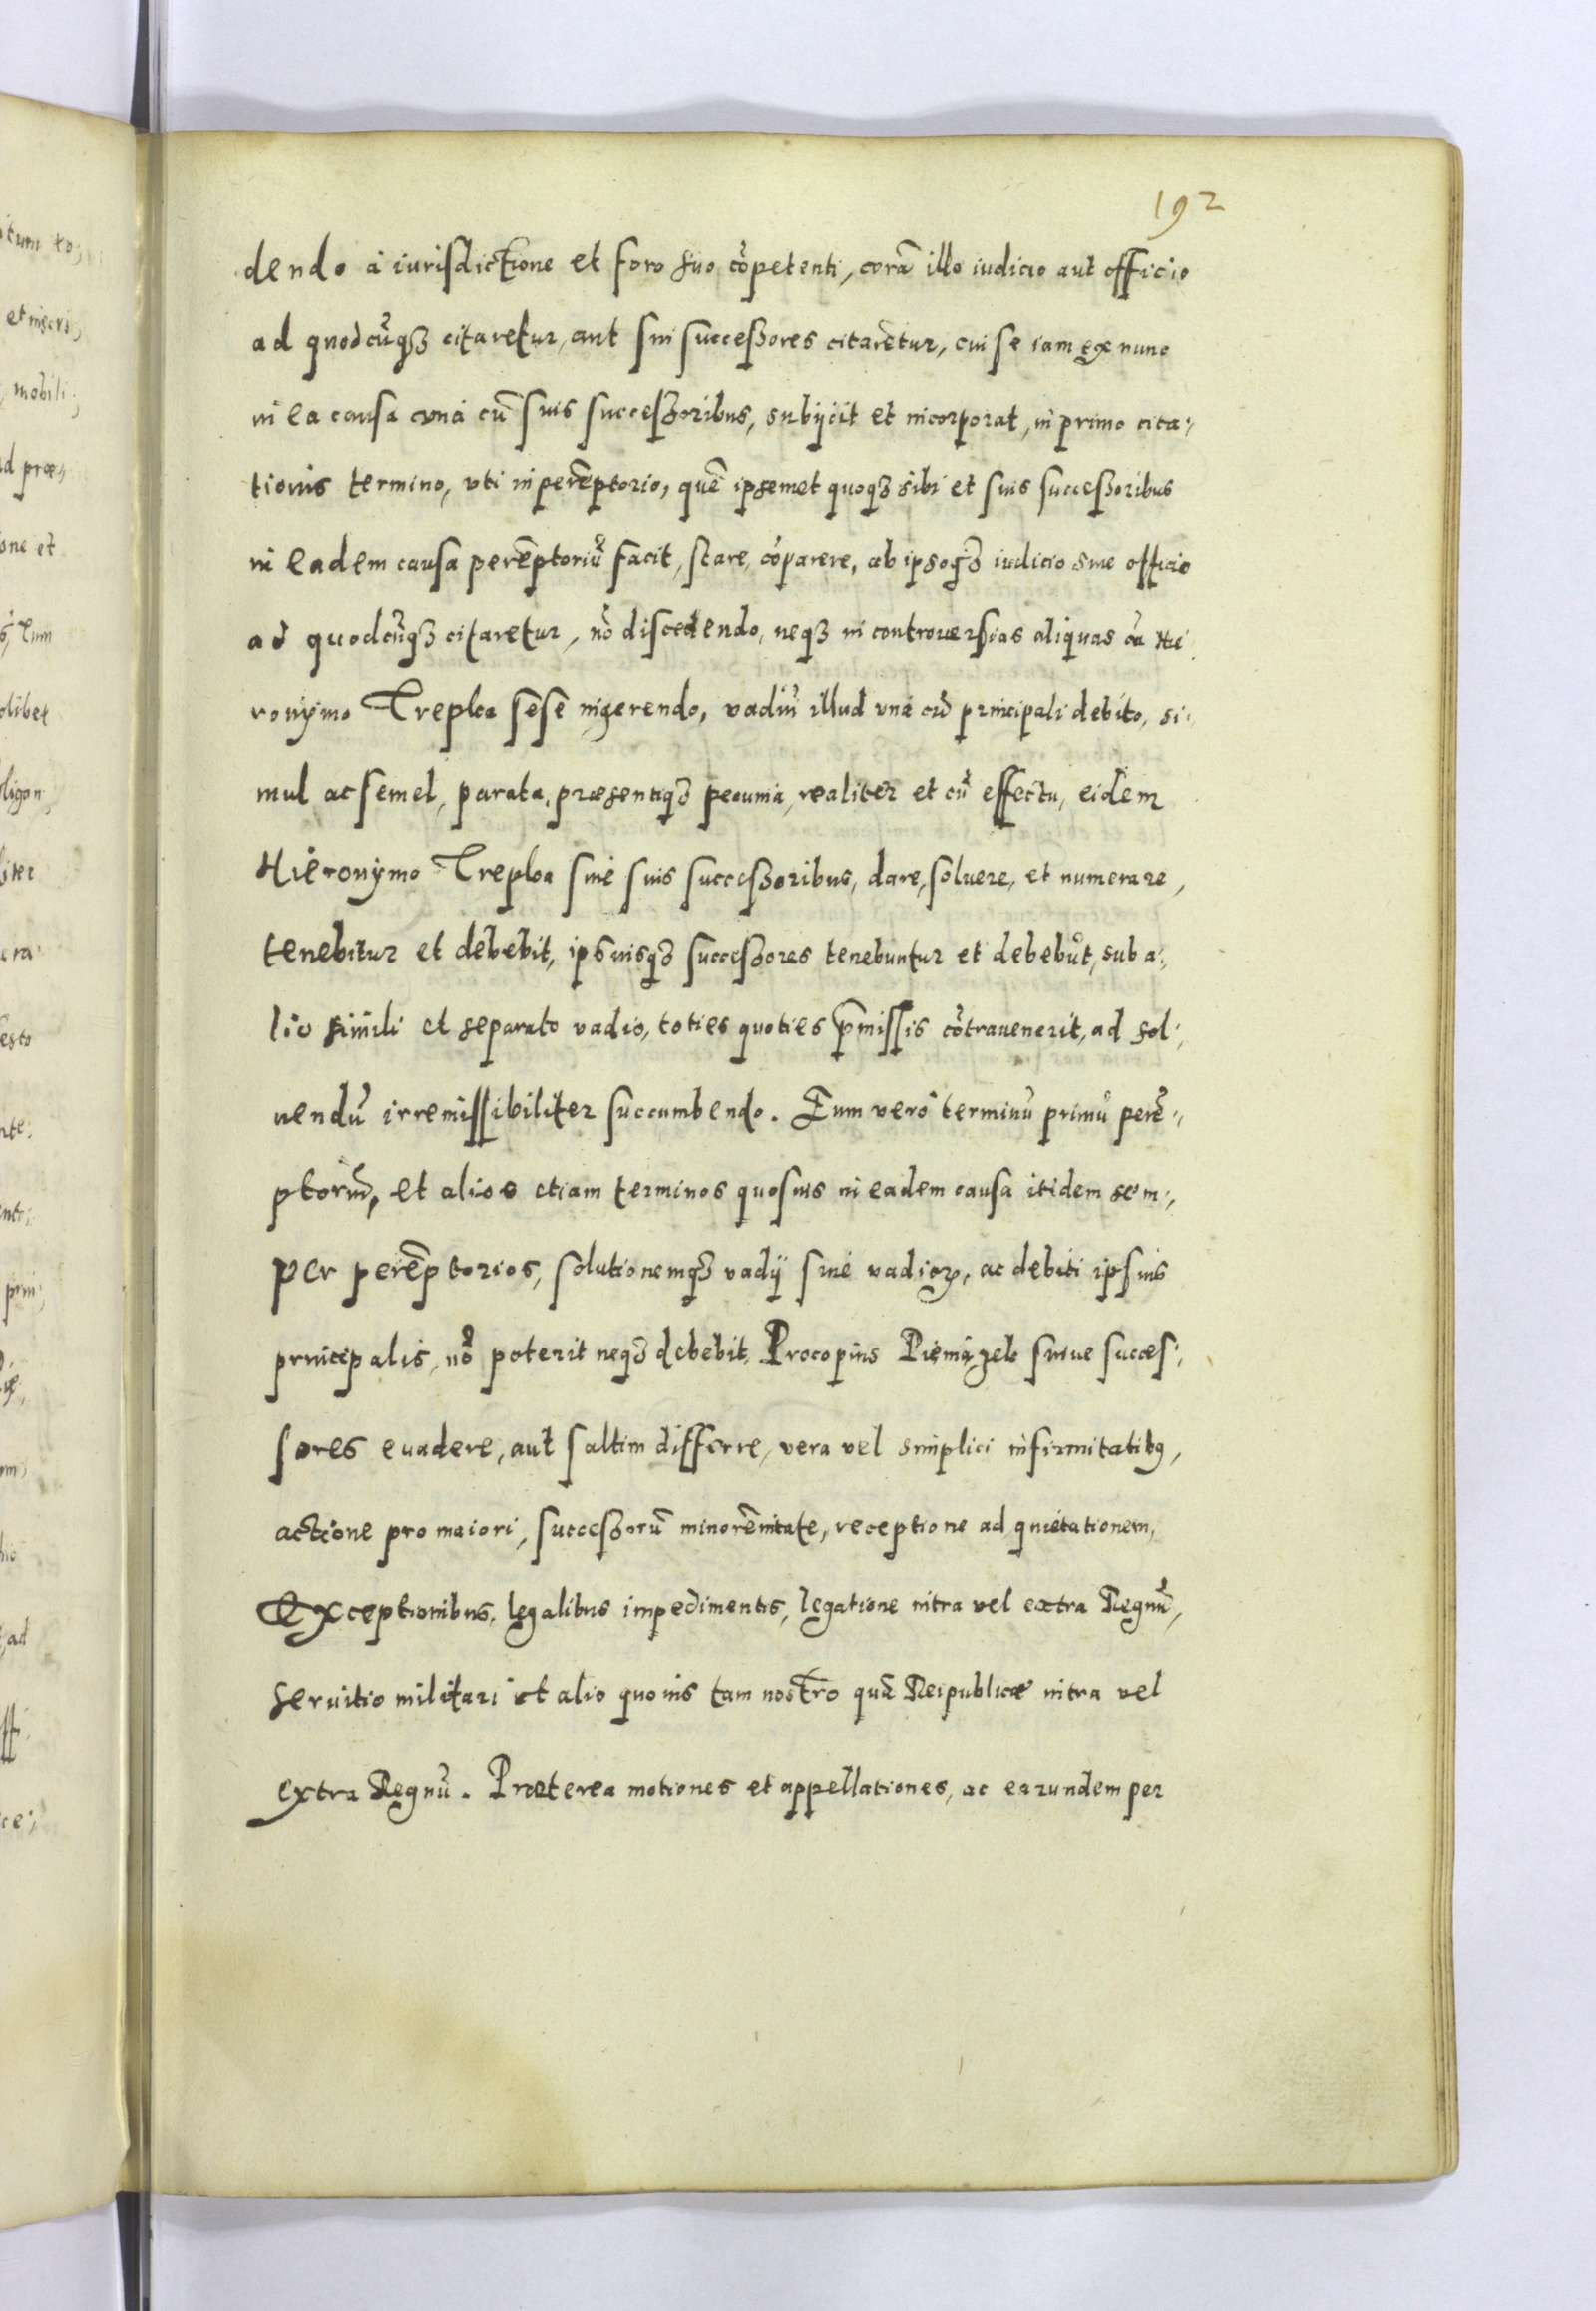 192
dendo à iurisdictione et foro suo cõpetenti, corã illo iudicio aut officio
ad quodcũq3 citaretur, aut sui successores citarẽtur, cui se iam ex nunc
in ea causa unà cũ suis successoribus, subijcit et incorporat, in primo cita-
tionis termino, uti in perẽptorio, quẽ ipsemet quoq3 sibi et suis successoribus
in eadem causa perẽptoriũ facit, stare, cõparere, ab ipsoq3 iudicio siue officio
ad quodcũq3 citaretur, nõ discedendo, neq3 in controuersias aliquas cũ Hie-
ronÿmo Trepka sese ingerendo, vadiũ illud unà cũ principali debito, si-
mul ac semel, parata, præsentiq3 pecunia, realiter et cũ effectu, eidem
Hieronÿmo Trepka siue suis successoribus, dare, soluere, et numerare,
tenebitur et debebit, ipsiusq3 successores tenebuntur et debebũt, sub a-
lio simili et separato vadio, toties quoties p̃missis cõtrauenerit, ad sol-
uendũ irremissibiliter succumbendo. Eum verò terminũ primũ perẽ-
ptoriũ, et alios etiam terminos quosuis in eadem causa itidem sem-
per perẽptorios, solutionemq3 vadij siue vadiorꝝ, ac debiti ipsius
principalis, nõ poterit neq3 debebit, Procopius Pieniążek suiue succes-
sores euadere, aut saltim differre, vera vel simplici infirmitatibꝯ,
actione pro maiori, successorũ minorẽnitate, receptione ad quietationem,
Exceptionibus, legalibus impedimentis, legatione intra vel extra Regnũ,
seruitio militari et alio quouis tam nostro quã Reipublicæ intra vel
extra Regnũ. Præterea motiones et appellationes, ac earundem per